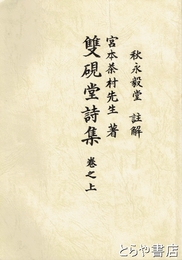 秋永毅堂 註解
宮本茶村先生 著
雙硯堂詩集 巻之上
古書
とらや書店